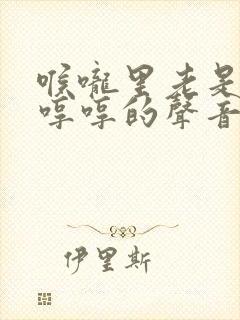 喉嚨里老是
哼哼的聲音
伊里斯